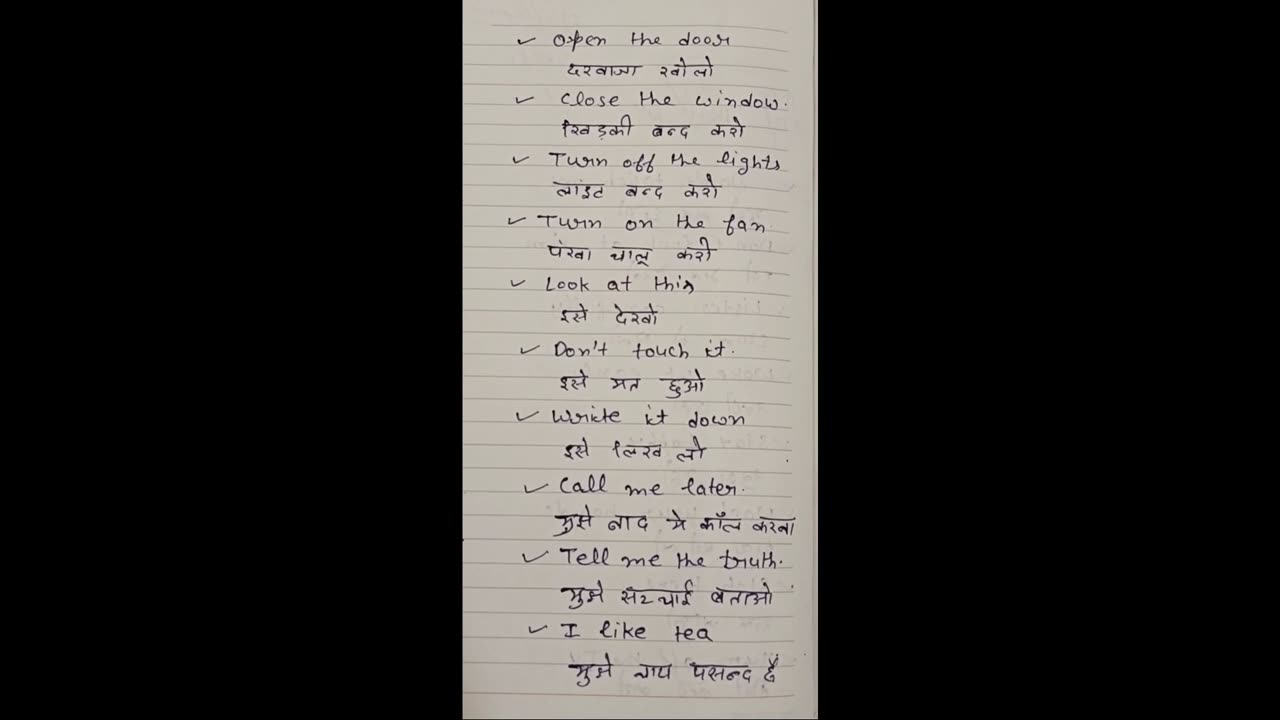 ✓ Open the door
दरवाजा खोलो
✓ Close the window.
खिड़की बन्द करो
✓ Turn off the lights
लाइट बन्द करो
✓ Turn on the fan.
पंखा चालू करो
✓ Look at this
इसे देखो
✓ Don't touch it.
इसे मत छुओ
✓ Write it down
इसे लिख लो
✓ Call me later.
मुझे बाद मे कॉल करना
✓ Tell me the truth.
मुझे सच्चाई बताओ
✓ I like tea
मुझे चाय पसन्द है